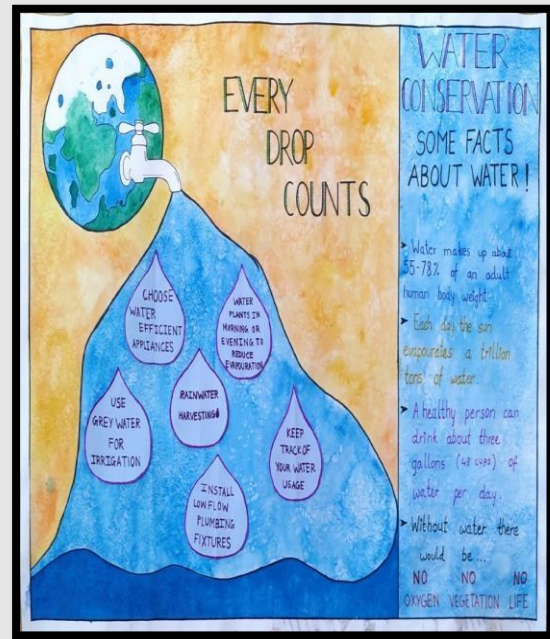 EVERY
DROP
COUNTS
CHOOSE
WATER
EFFICIENT
APPLIANCES
WATER
PLANTS IN
MORNING OR
EVENING TO
REDUCE
EVAPOURATION
RAINWATER
HARVESTING
USE
GREY WATER
FOR
IRRIGATION
KEEP
TRACK OF
YOUR WATER
USAGE
INSTALL
LOW FLOW
PLUMBING
FIXTURES
WATER
CONSERVATION
SOME FACTS
ABOUT WATER!
➤ Water makes up about
55-78% of an adult
human body weight.
➤ Each day the sun
evapourates a trillion
tons of water.
➤ A healthy person can
drink about three
gallons (48 cups) of
water per day.
➤ Without water there
would be...
NO NO NO
OXYGEN VEGETATION LIFE